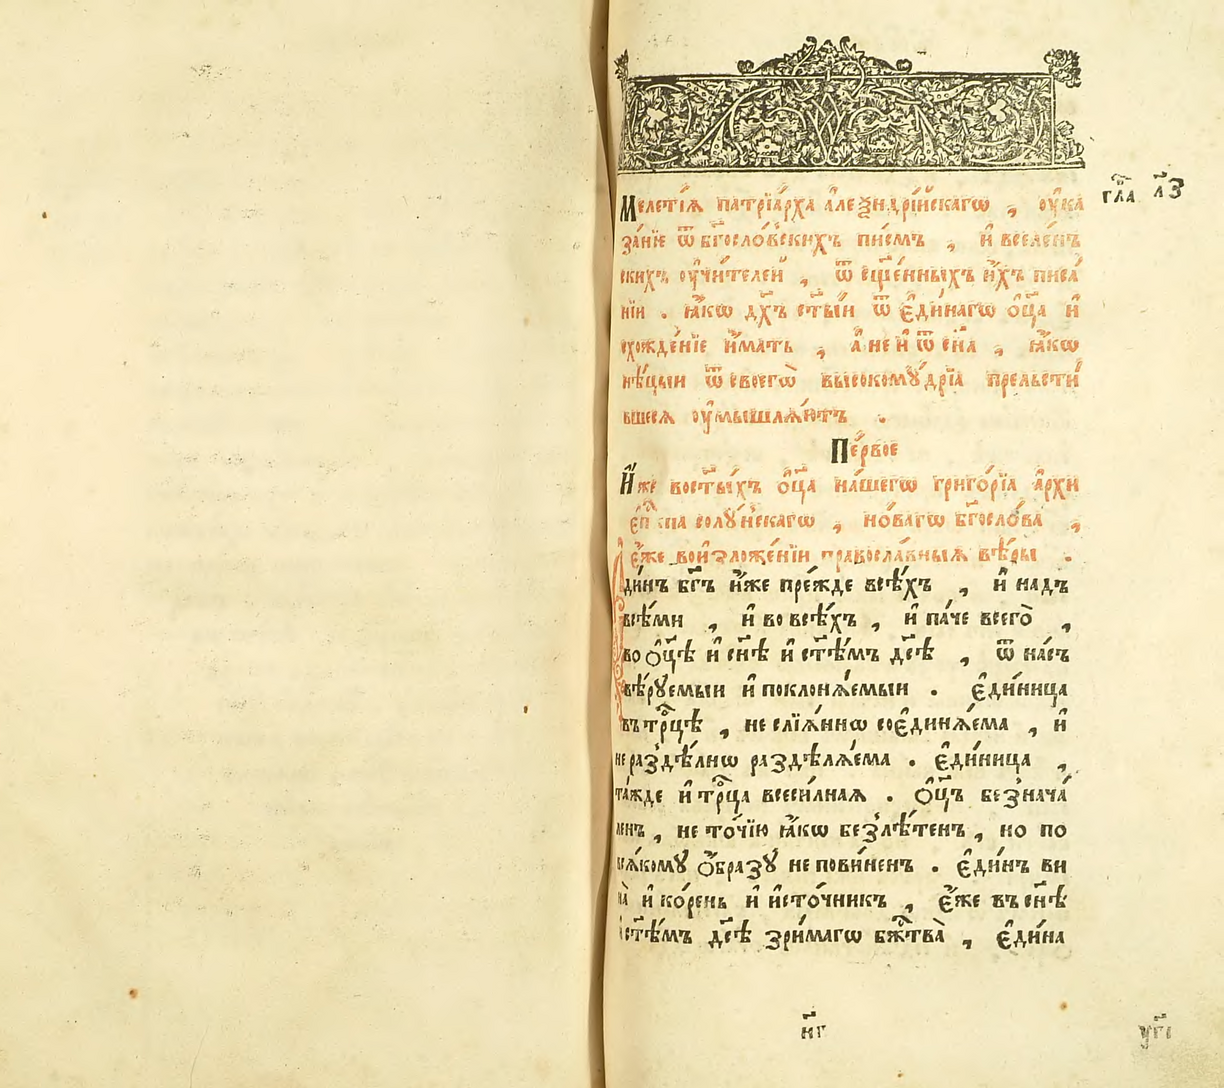 гл҃а л҃з
Мелетїѧ патрїа́рха а҆леѯандрі́йскагѡ , оу҆ка
за́нїе ѿ бг҃осло́вскихъ пи́смъ , и҆ вселе́н
скихъ оу҆чи́телей , ѿ сщ҃е́нныхъ и҆́хъ писа́
нїи . ꙗ҆́кѡ дх҃ъ ст҃ы́и ѿ є҆ди́нагѡ ѻ҆ц҃а и҆
схожде́нїе и҆́мать , а҆ не и҆ ѿ сн҃а , ꙗ҆́кѡ
нѣ́цыи ѿ своегѡ̀ высокомꙋ́дрїа прельсти́
вшесѧ оу҆мышлѧ́ютъ .
Пе́рвое
И҆́же во ст҃ы́хъ ѻ҆ц҃а на́шегѡ григо́рїа а҆рхи
є҆пⷭ҇кпа солꙋ́нскагѡ , но́вагѡ бг҃осло́ва ,
є҆́же во и҆зложе́нїи правосла́вныѧ вѣ́ры .
Є҆ди́нъ бг҃ъ и҆́же пре́жде всѣ́хъ , и҆ надъ
всѣ́ми , и҆ во всѣ́хъ , и҆ па́че всего̀ ,
во ѻ҆ц҃ѣ и҆ сн҃ѣ и҆ ст҃ѣ́мъ дс҃ѣ , ѿ на́съ
вѣ́рꙋемыи и҆ поклонѧ́емыи . є҆ди́ница
въ трⷪ҇цѣ , не слїѧ́ннѡ соє҆динѧ́ема , и҆
не раздѣ́лнѡ раздѣлѧ́ема . є҆ди́ница ,
та́жде и҆ трⷪ҇ца всеси́лнаѧ . ѻ҆ц҃ъ безнача́
ленъ , не то́чїю ꙗ҆́кѡ безлѣ́тенъ , но по
всѧ́комꙋ ѻ҆́бразꙋ не пови́ненъ . є҆ди́нъ ви
на̀ и҆ ко́рень и҆ и҆сто́чникъ , є҆́же въ сн҃ѣ
и҆ ст҃ѣ́мъ дс҃ѣ зри́магѡ бж҃тва̀ , є҆ди́на
н҃г